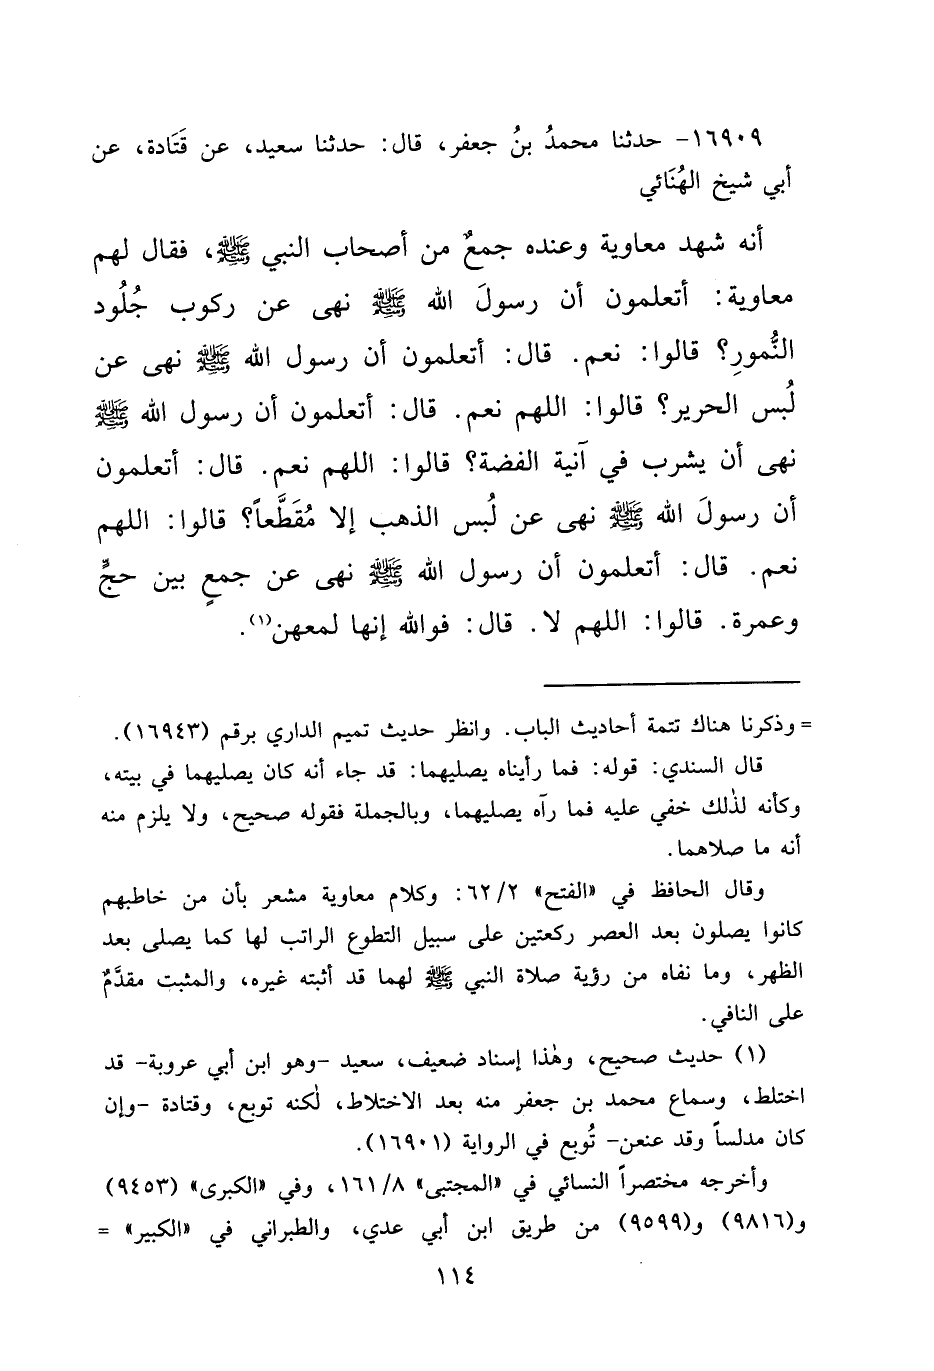 ١٦٩٠٩- حدثنا محمدُ بنُ جعفر، قال: حدثنا سعيد، عن قَتَادة، عن
أبي شيخ الهُنَائي
أنه شهد معاوية وعنده جمعٌ من أصحاب النبي ﷺ، فقال لهم
معاوية: أتعلمون أن رسولَ الله ﷺ نهى عن ركوب جُلُود
النُّمورِ؟ قالوا: نعم. قال: أتعلمون أن رسول الله ﷺ نهى عن
لُبس الحرير؟ قالوا: اللهم نعم. قال: أتعلمون أن رسول الله ﷺ
نهى أن يشرب في آنية الفضة؟ قالوا: اللهم نعم. قال: أتعلمون
أن رسولَ الله ﷺ نهى عن لُبس الذهب إلا مُقَطَّعاً؟ قالوا: اللهم
نعم. قال: أتعلمون أن رسول الله ﷺ نهى عن جمعٍ بين حجٍّ
وعمرة. قالوا: اللهم لا. قال: فوالله إنها لمعهن(١).
= وذكرنا هناك تتمة أحاديث الباب. وانظر حديث تميم الداري برقم (١٦٩٤٣).
قال السندي: قوله: فما رأيناه يصليهما: قد جاء أنه كان يصليهما في بيته،
وكأنه لذٰلك خفي عليه فما رآه يصليهما، وبالجملة فقوله صحيح، ولا يلزم منه
أنه ما صلاهما.
وقال الحافظ في «الفتح» ٦٢/٢: وكلام معاوية مشعر بأن من خاطبهم
كانوا يصلون بعد العصر ركعتين على سبيل التطوع الراتب لها كما يصلى بعد
الظهر، وما نفاه من رؤية صلاة النبي ﷺ لهما قد أثبته غيره، والمثبت مقدَّمٌ
على النافي.
(١) حديث صحيح، وهٰذا إسناد ضعيف، سعيد -وهو ابن أبي عروبة- قد
اختلط، وسماع محمد بن جعفر منه بعد الاختلاط، لٰكنه توبع، وقتادة -وإن
كان مدلساً وقد عنعن- تُوبع في الرواية (١٦٩٠١).
وأخرجه مختصراً النسائي في «المجتبى» ١٦١/٨، وفي «الكبرى» (٩٤٥٣)
و(٩٨١٦) و(٩٥٩٩) من طريق ابن أبي عدي، والطبراني في «الكبير» =
١١٤